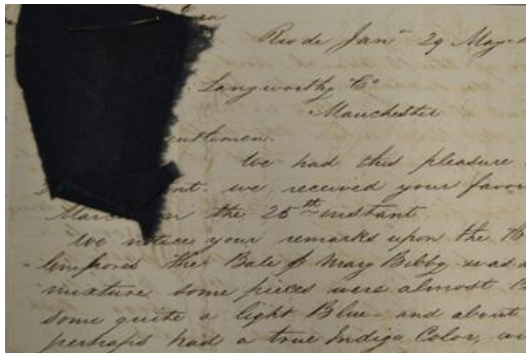 Rio de Jan 29 May
Langworthy & Co
Manchester
Gentlemen.
We had this pleasure
we received your favor
March on the 25th instant
We notice your remarks upon the
the Bale p Mary Bibby was a
mixture some pieces were almost
some quite a light Blue and about
perhaps had a true Indigo Color,